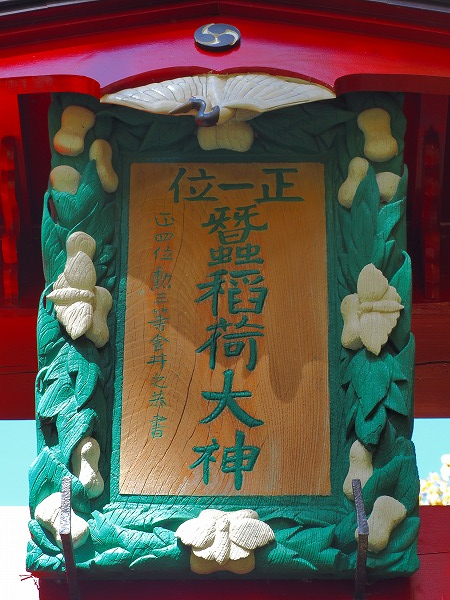 正一位
蠶稲荷大神
正四位勲三等金井之恭書